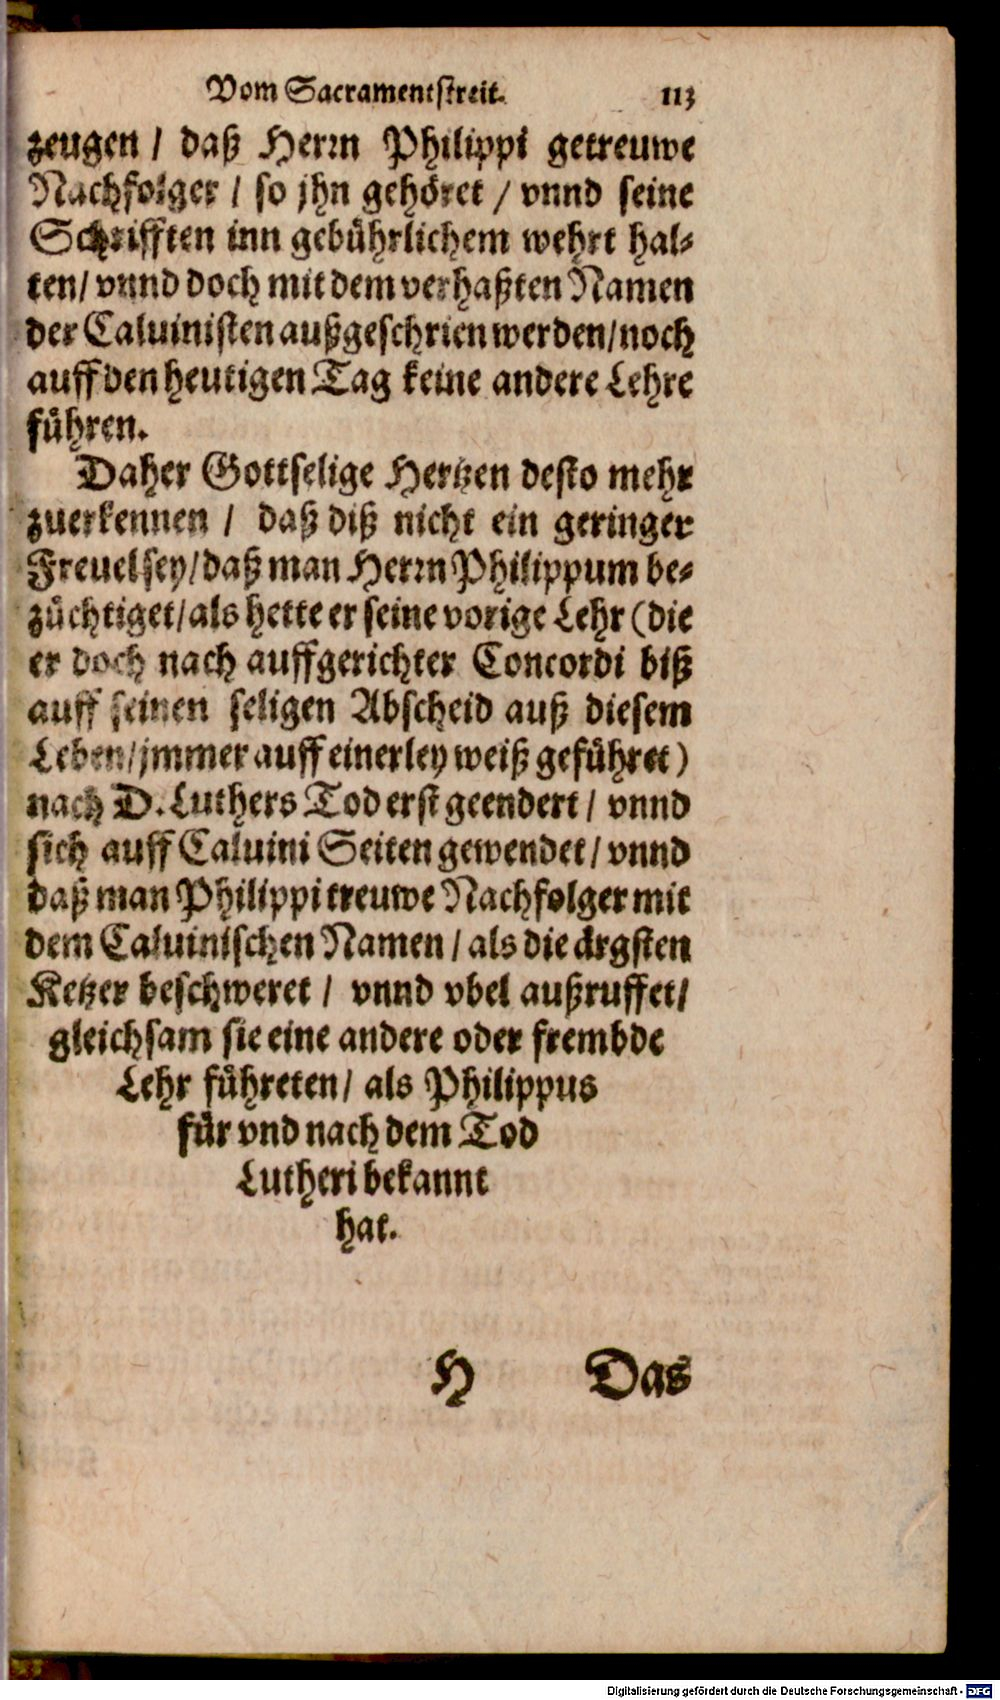 Vom Sacramentstreit. 113
zeugen / daß Herrn Philippi getreuwe
Nachfolger / so jhn gehöret / vnnd seine
Schrifften inn gebührlichem wehrt hal-
ten / vnnd doch mit dem verhaßten Namen
der Caluinisten außgeschrien werden / noch
auff den heutigen Tag keine andere Lehre
führen.
Daher Gottselige Hertzen desto mehr
zuerkennen / daß diß nicht ein geringer
Freuel sey / daß man Herrn Philippum be-
züchtiget / als hette er seine vorige Lehr (die
er doch nach auffgerichter Concordi biß
auff seinen seligen Abscheid auß diesem
Leben / jmmer auff einerley weiß geführet)
nach D. Luthers Tod erst geendert / vnnd
sich auff Caluini Seiten gewendet / vnnd
daß man Philippi treuwe Nachfolger mit
dem Caluinischen Namen / als die ärgsten
Ketzer beschweret / vnnd vbel außruffet /
gleichsam sie eine andere oder frembde
Lehr führeten / als Philippus
für vnd nach dem Tod
Lutheri bekannt
hat.
H Das
Digitalisierung gefördert durch die Deutsche Forschungsgemeinschaft - DFG